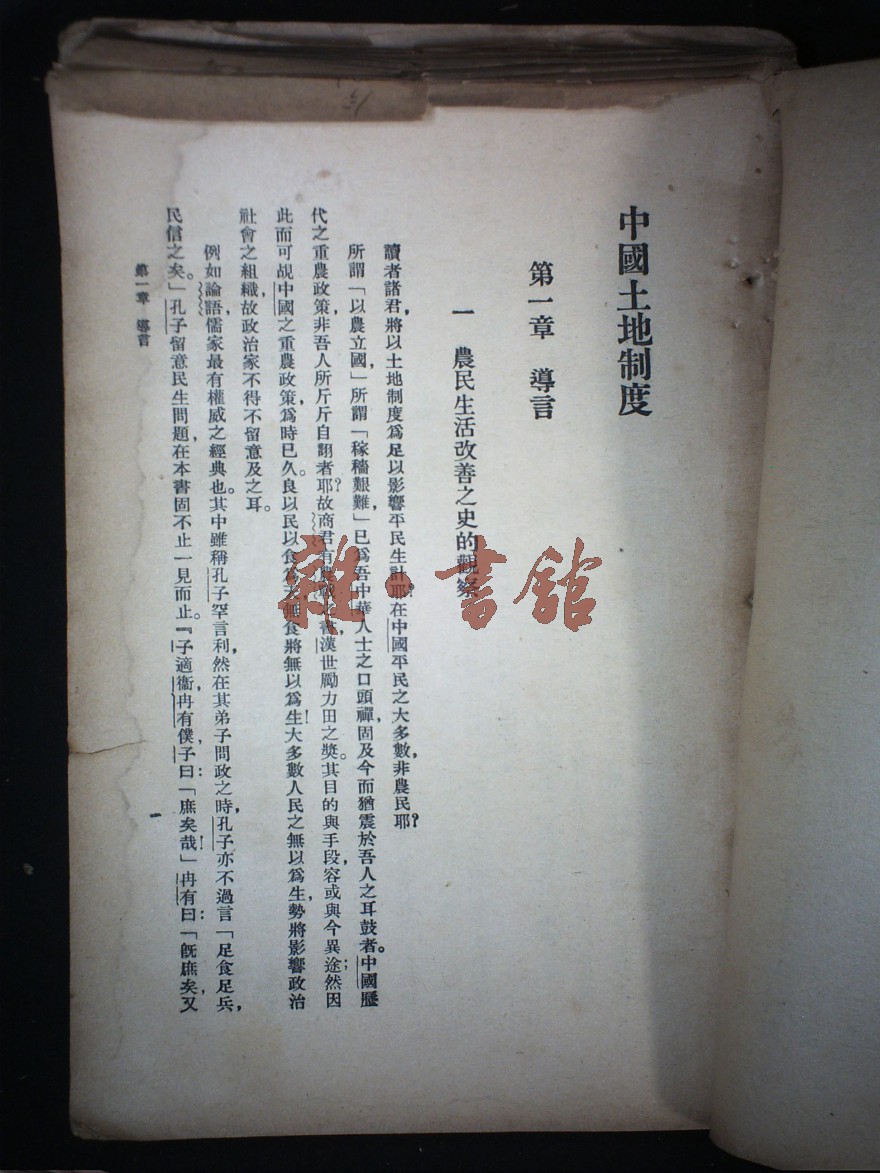 中國土地制度
第一章　導言
一　農民生活改善之史的觀察
讀者諸君，將以土地制度爲足以影響平民生計耶？在中國平民之大多數，非農民耶？
所謂「以農立國，」所謂「稼穡艱難，」已爲吾中華人士之口頭禪，固及今而猶震於吾人之耳鼓者。中國歷
代之重農政策，非吾人所斤斤自詡者耶？故商君有農戰之書，漢世勵力田之奬。其目的與手段，容或與今異途；然因
此而可覘中國之重農政策，爲時已久。良以民以食爲天，無食將無以爲生！大多數人民之無以爲生，勢將影響政治
社會之組織，故政治家不得不留意及之耳。
例如論語，儒家最有權威之經典也。其中雖稱孔子罕言利，然在其弟子問政之時，孔子亦不過言「足食足兵，
民信之矣。」孔子留意民生問題，在本書固不止一見而止。『子適衞，冉有僕，子曰：「庶矣哉！」冉有曰：「旣庶矣，又
第一章　導言
一
雜·書館